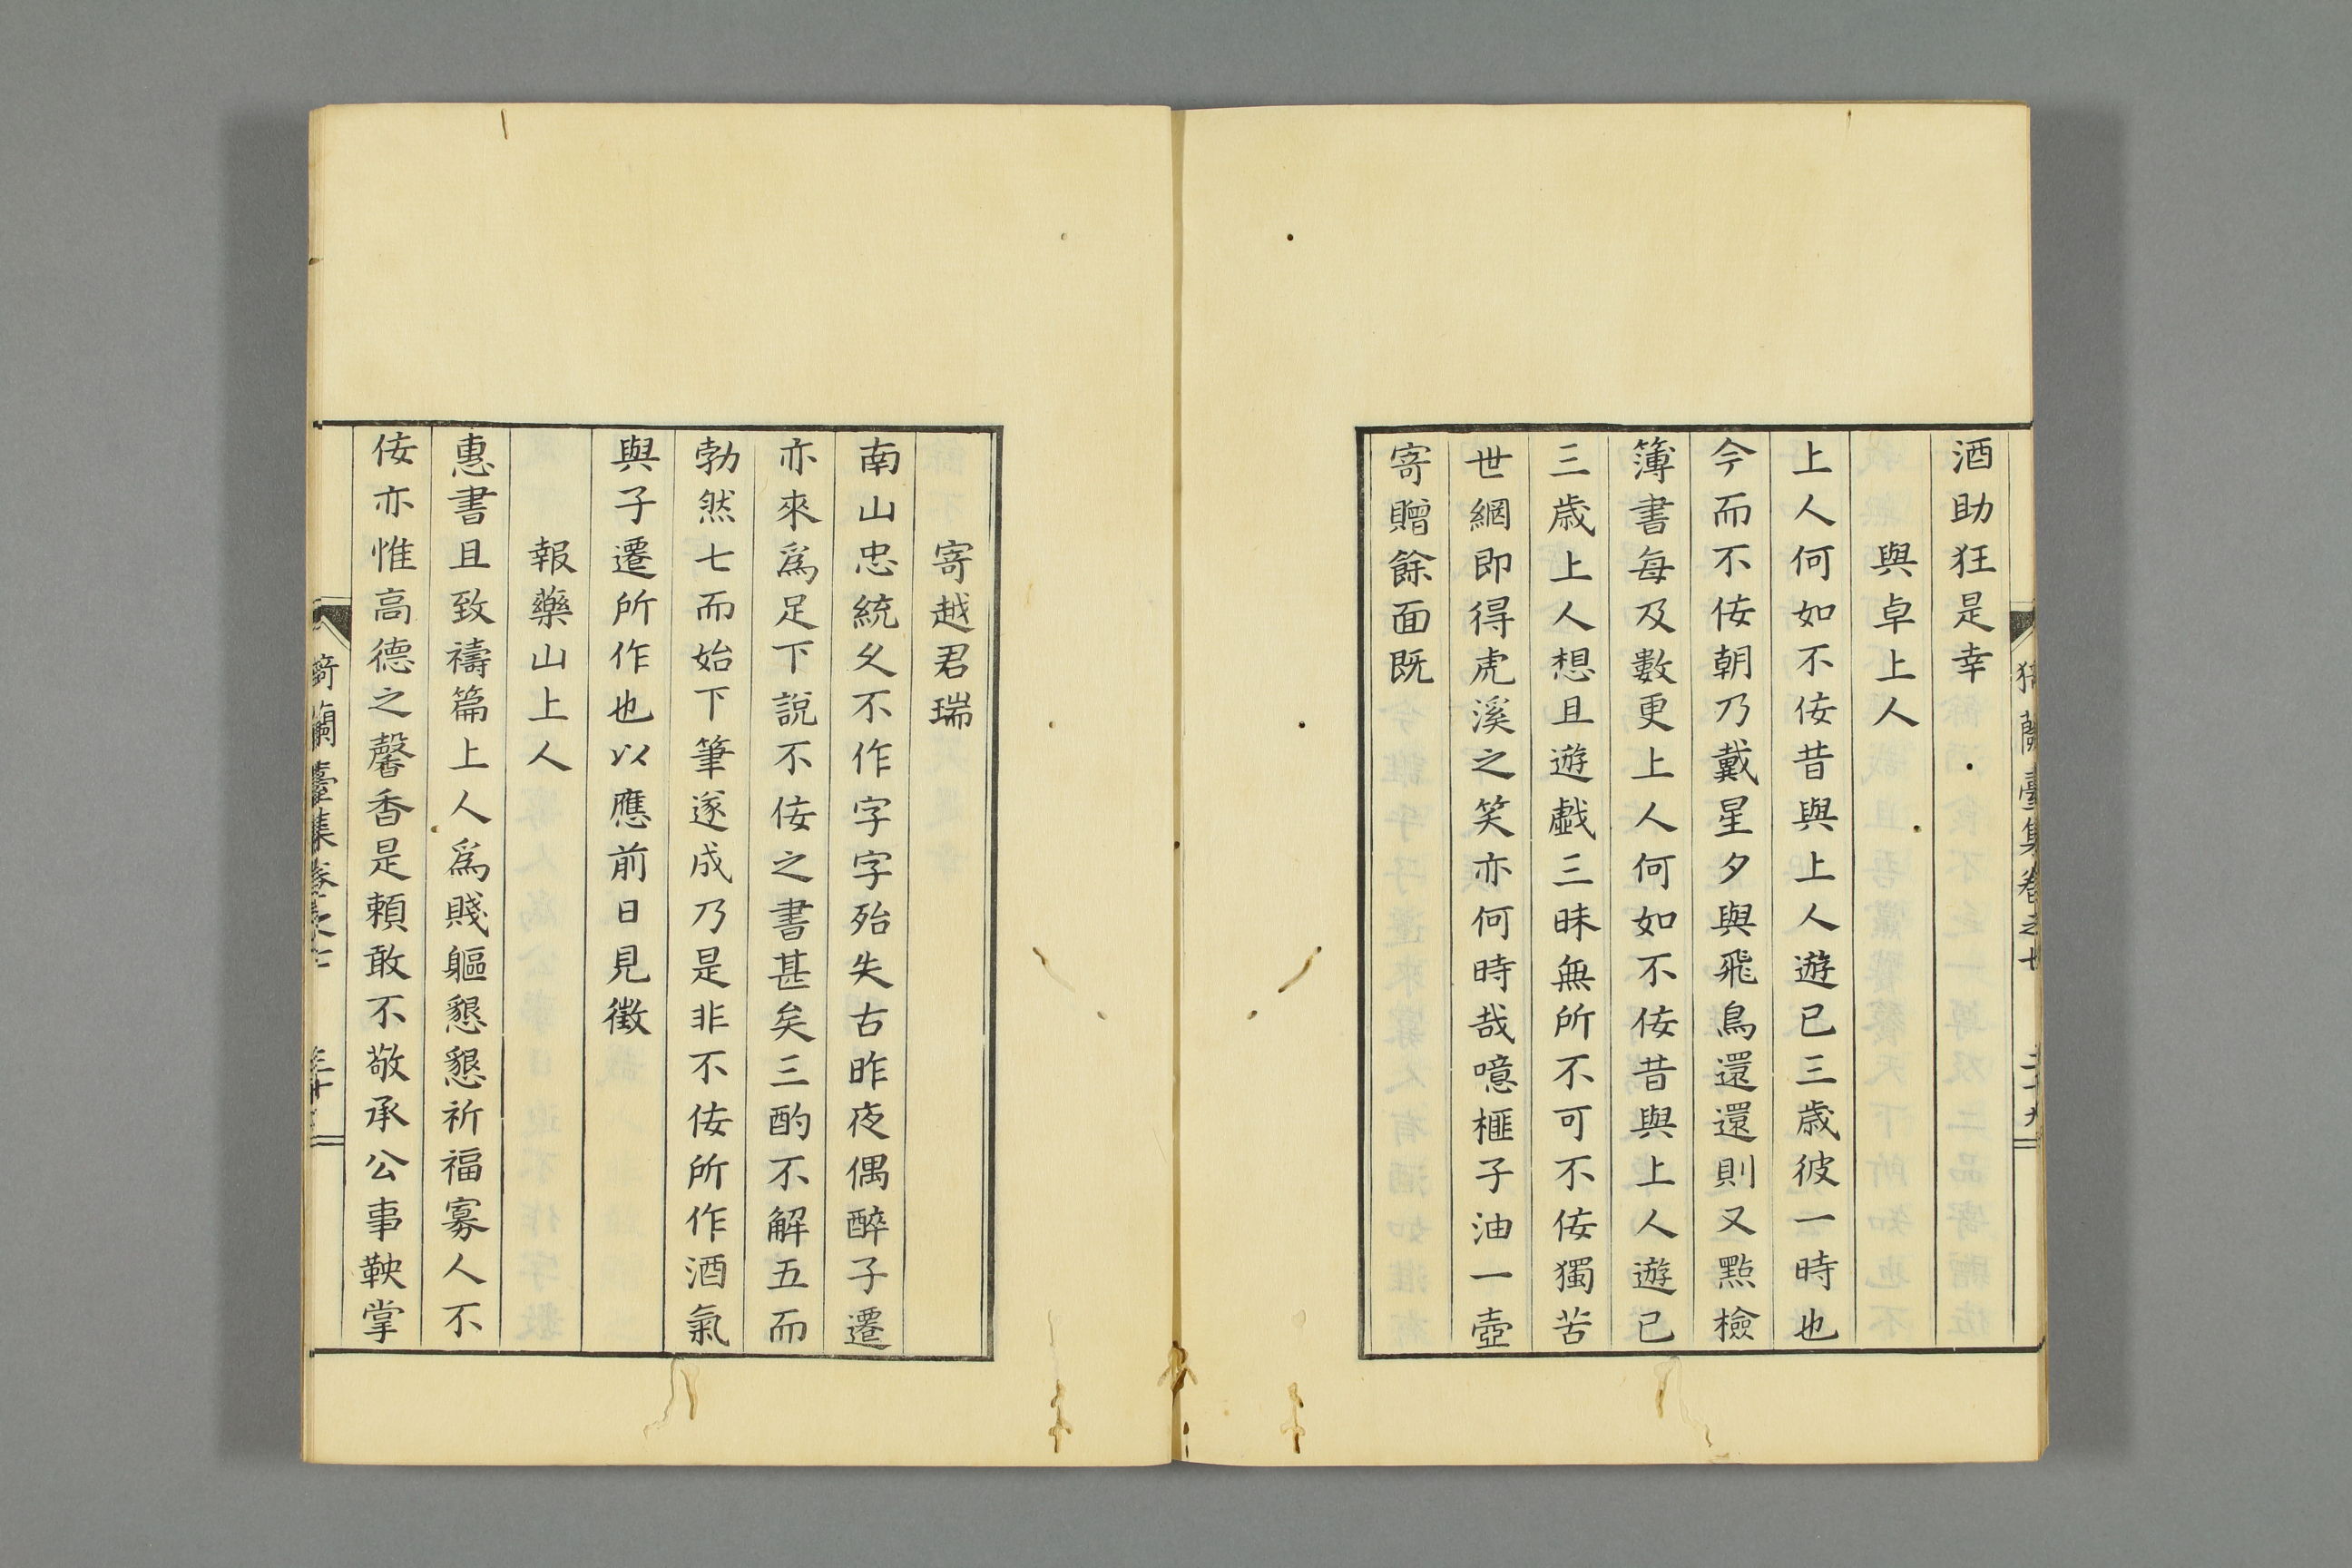 酒助狂是幸
與卓上人
上人何如不佞昔與上人遊已三歳彼一時也
今而不佞朝乃戴星夕與飛鳥還還則又㸃檢
簿書毎及數更上人何如不佞昔與上人遊已
三歳上人想且遊戯三昧無所不可不佞獨苦
世網即得虎溪之笑亦何時哉噫榧子油一壺
寄贈餘面既
寄越君瑞
南山忠統久不作字字殆失古昨夜偶醉子遷
亦來爲足下說不佞之書甚矣三酌不解五而
勃然七而始下筆遂成乃是非不佞所作酒氣
與子遷所作也以應前日見徵
報藥山上人
惠書且致禱篇上人爲賤軀懇懇祈福寡人不
佞亦惟高德之馨香是頼敢不敬承公事鞅掌
猗蘭臺集卷之七